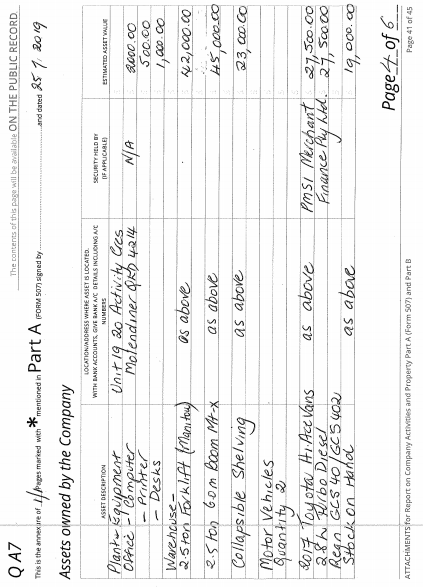 The contents of this page will be available ON THE PUBLIC RECORD
Q A7
This is the annexure of 4 Pages marked with * mentioned in Part A (FORM 507) signed by and dated 25 7. 2019
Assets owned by the Company
ASSET DESCRIPTION LOCATION/ADDRESS WHERE ASSET IS LOCATED. WITH BANK ACCOUNTS, GIVE BANK A/C DETAILS INCLUDING A/C NUMBERS SECURITY HELD BY (IF APPLICABLE) ESTIMATED ASSET VALUE
Plant & Equipment Unit 19 20 Activity Cres
Office - Computer Molendiner QLD 4214 N/A 2000.00
- Printer 500.00
- Desks 1,000.00
Warehouse -
2.5 ton Forklift (Manitou) as above 42,000.00
2.5 ton 6.0m Boom Mt-X as above 45,000.00
Collapsible Shelving as above 23,000.00
Motor Vehicles
Quantity 2
2017 Toyota HiAce Vans as above PMSI Merchant 27,500.00
2.8L Turbo Diesel Finance Pty Ltd. 27,500.00
Regn GCS 401 GCS 402
Stock on Hand as above 19,000.00
Page 4 of 6
ATTACHMENTS for Report on Company Activities and Property Part A (Form 507) and Part B Page 41 of 45